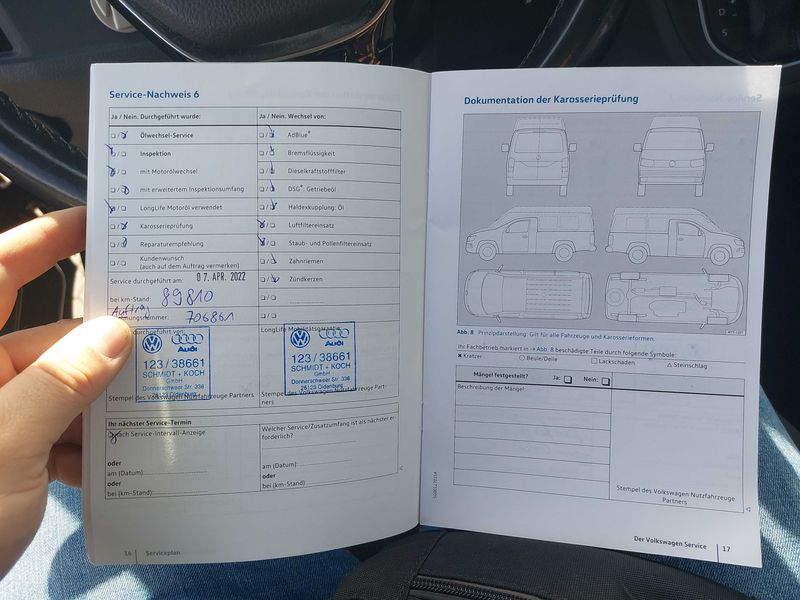 Service-Nachweis 6
Ja / Nein. Durchgeführt wurde:
Ja / Nein. Wechsel von:
Ölwechsel-Service
AdBlue®
Inspektion
Bremsflüssigkeit
mit Motorölwechsel
Dieselkraftstofffilter
mit erweitertem Inspektionsumfang
DSG®: Getriebeöl
LongLife Motoröl verwendet
Haldexkupplung: Öl
Karosserieprüfung
Luftfiltereinsatz
Reparaturempfehlung
Staub- und Pollenfiltereinsatz
Kundenwunsch
(auch auf dem Auftrag vermerken)
Zahnriemen
Zündkerzen
Service durchgeführt am: 07. APR. 2022
bei km-Stand: 89810
Auftrag
nungsnummer: 706861
durchgeführt von:
LongLife Mobilitätsgarantie
Audi
123/38661
SCHMIDT + KOCH
GmbH
Donnerschweer Str. 338
26123 Oldenburg
Stempel des Volkswagen Nutzfahrzeuge Partners
Audi
123/38661
SCHMIDT + KOCH
GmbH
Donnerschweer Str. 338
26123 Oldenburg
Stempel des Volkswagen Nutzfahrzeuge Part-
ners
Ihr nächster Service-Termin
nach Service-Intervall-Anzeige
oder
am (Datum):
oder
bei (km-Stand):
Welcher Service/Zusatzumfang ist als nächster er-
forderlich?
am (Datum):
oder
bei (km-Stand):
16 Serviceplan
Dokumentation der Karosserieprüfung
Abb. 8 Prinzipdarstellung: Gilt für alle Fahrzeuge und Karosserieformen.
Ihr Fachbetrieb markiert in → Abb. 8 beschädigte Teile durch folgende Symbole:
Kratzer
Beule/Delle
Lackschaden
Steinschlag
Mängel festgestellt? Ja: Nein:
Beschreibung der Mängel:
Stempel des Volkswagen Nutzfahrzeuge
Partners
Der Volkswagen Service 17